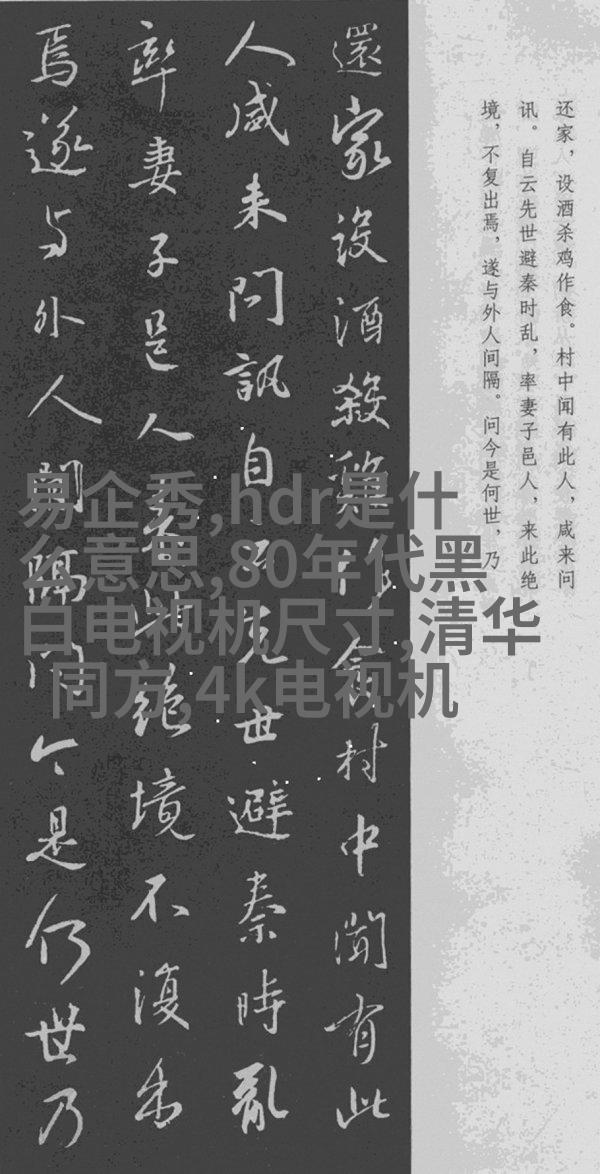 还家，设酒杀鸡作食。村中闻有此人，咸来问
讯。自云先世避秦时乱，率妻子邑人，来此绝
境，不复出焉，遂与外人间隔。问今是何世，乃
還家設酒殺雞作食村中聞有此
人咸来問訊自云先世避秦時亂
率妻子邑人来此絶境不復出
焉遂与外人間隔問今是何世乃
易企秀,hdr是什
么意思,80年代黑
白电视机尺寸,清华
同方,4k电视机